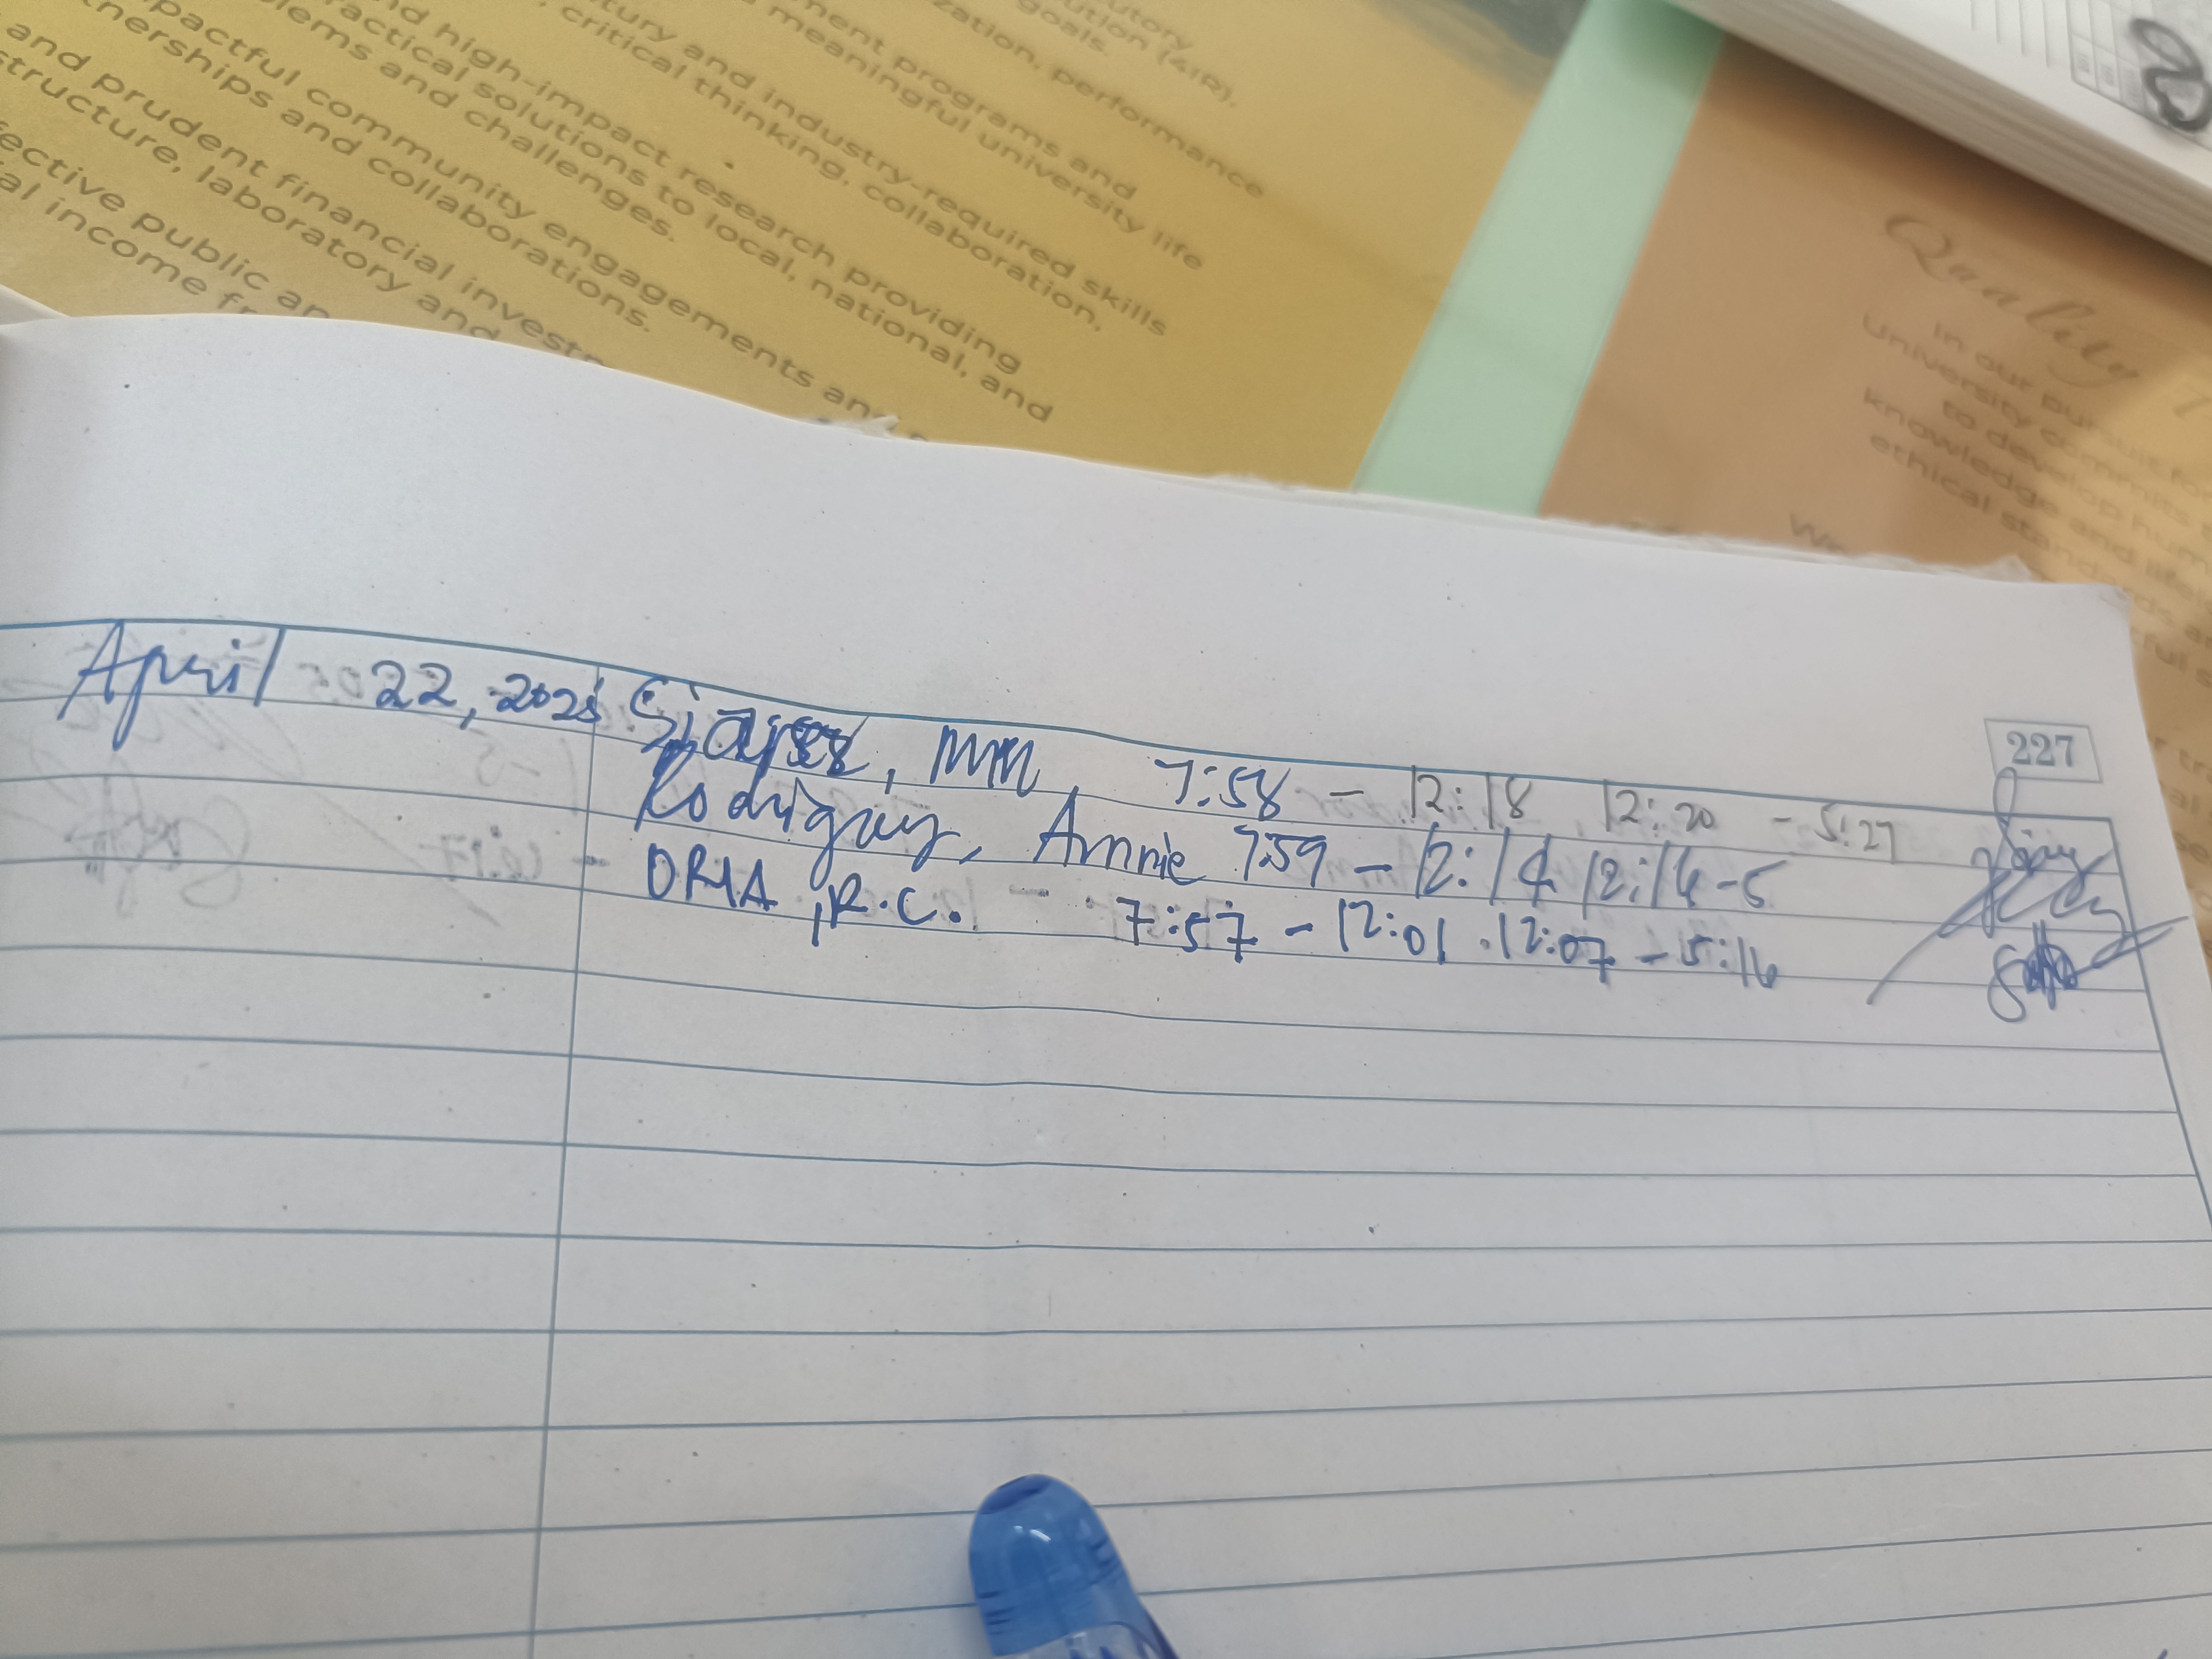 utory
ution (4IR),
goals.
zation, performance
ment programs and
meaningful university life
tury and industry-required skills
critical thinking, collaboration,
nd high-impact research providing
ractical solutions to local, national, and
lems and challenges.
pactful community engagements and
nerships and collaborations.
and prudent financial invest
structure, laboratory and
ective public an
al income fr
Quality
In our pursuit for
University commits
to develop hum
knowledge and life
ethical stand
We
227
April 22, 2025
7:58 - 12:18 12:20 - 5:27
Rodriguez, Annie 7:59 - 12:14 12:16-5
ORIA, R.C. 7:57 - 12:01 . 12:07 - 5:16